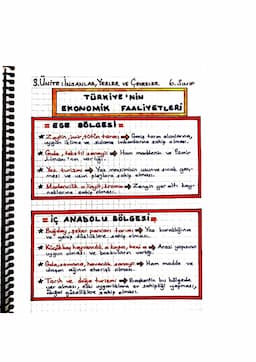 3. Ünite: İnsanlar, Yerler ve Çevreler 6. Sınıf
TÜRKİYE'NİN
EKONOMİK FAALİYETLERİ
EGE BÖLGESİ
★ Zeytin, incir, tütün tarımı → Geniş tarım alanlarına,
uygun iklime ve sulama imkanlarına sahip olması.
★ Gıda, tekstil sanayii → Ham maddenin ve İzmir
Limanı'nın varlığı.
★ Yaz turizmi → Yaz mevsiminin uzun ve sıcak geç-
mesi ve uzun plajlara sahip olması.
★ Madencilik → Zengin yer altı kay-
naklarına sahip olması.
İÇ ANADOLU BÖLGESİ
★ Buğday, şeker pancarı tarımı → Yaz kuraklığına
ve düzlüklere sahip olması.
★ Küçükbaş hayvancılık → Arazi yapısının
uygun olması ve bozkırların varlığı.
★ Gıda, havacılık sanayii → Ham madde ve
ulaşım ağının elverişli olması.
★ Tarih ve doğa turizmi → Başkentin bu bölgede
yer alması, eski uygarlıklara ev sahipliği yapması,
doğal güzelliklere sahip olması.